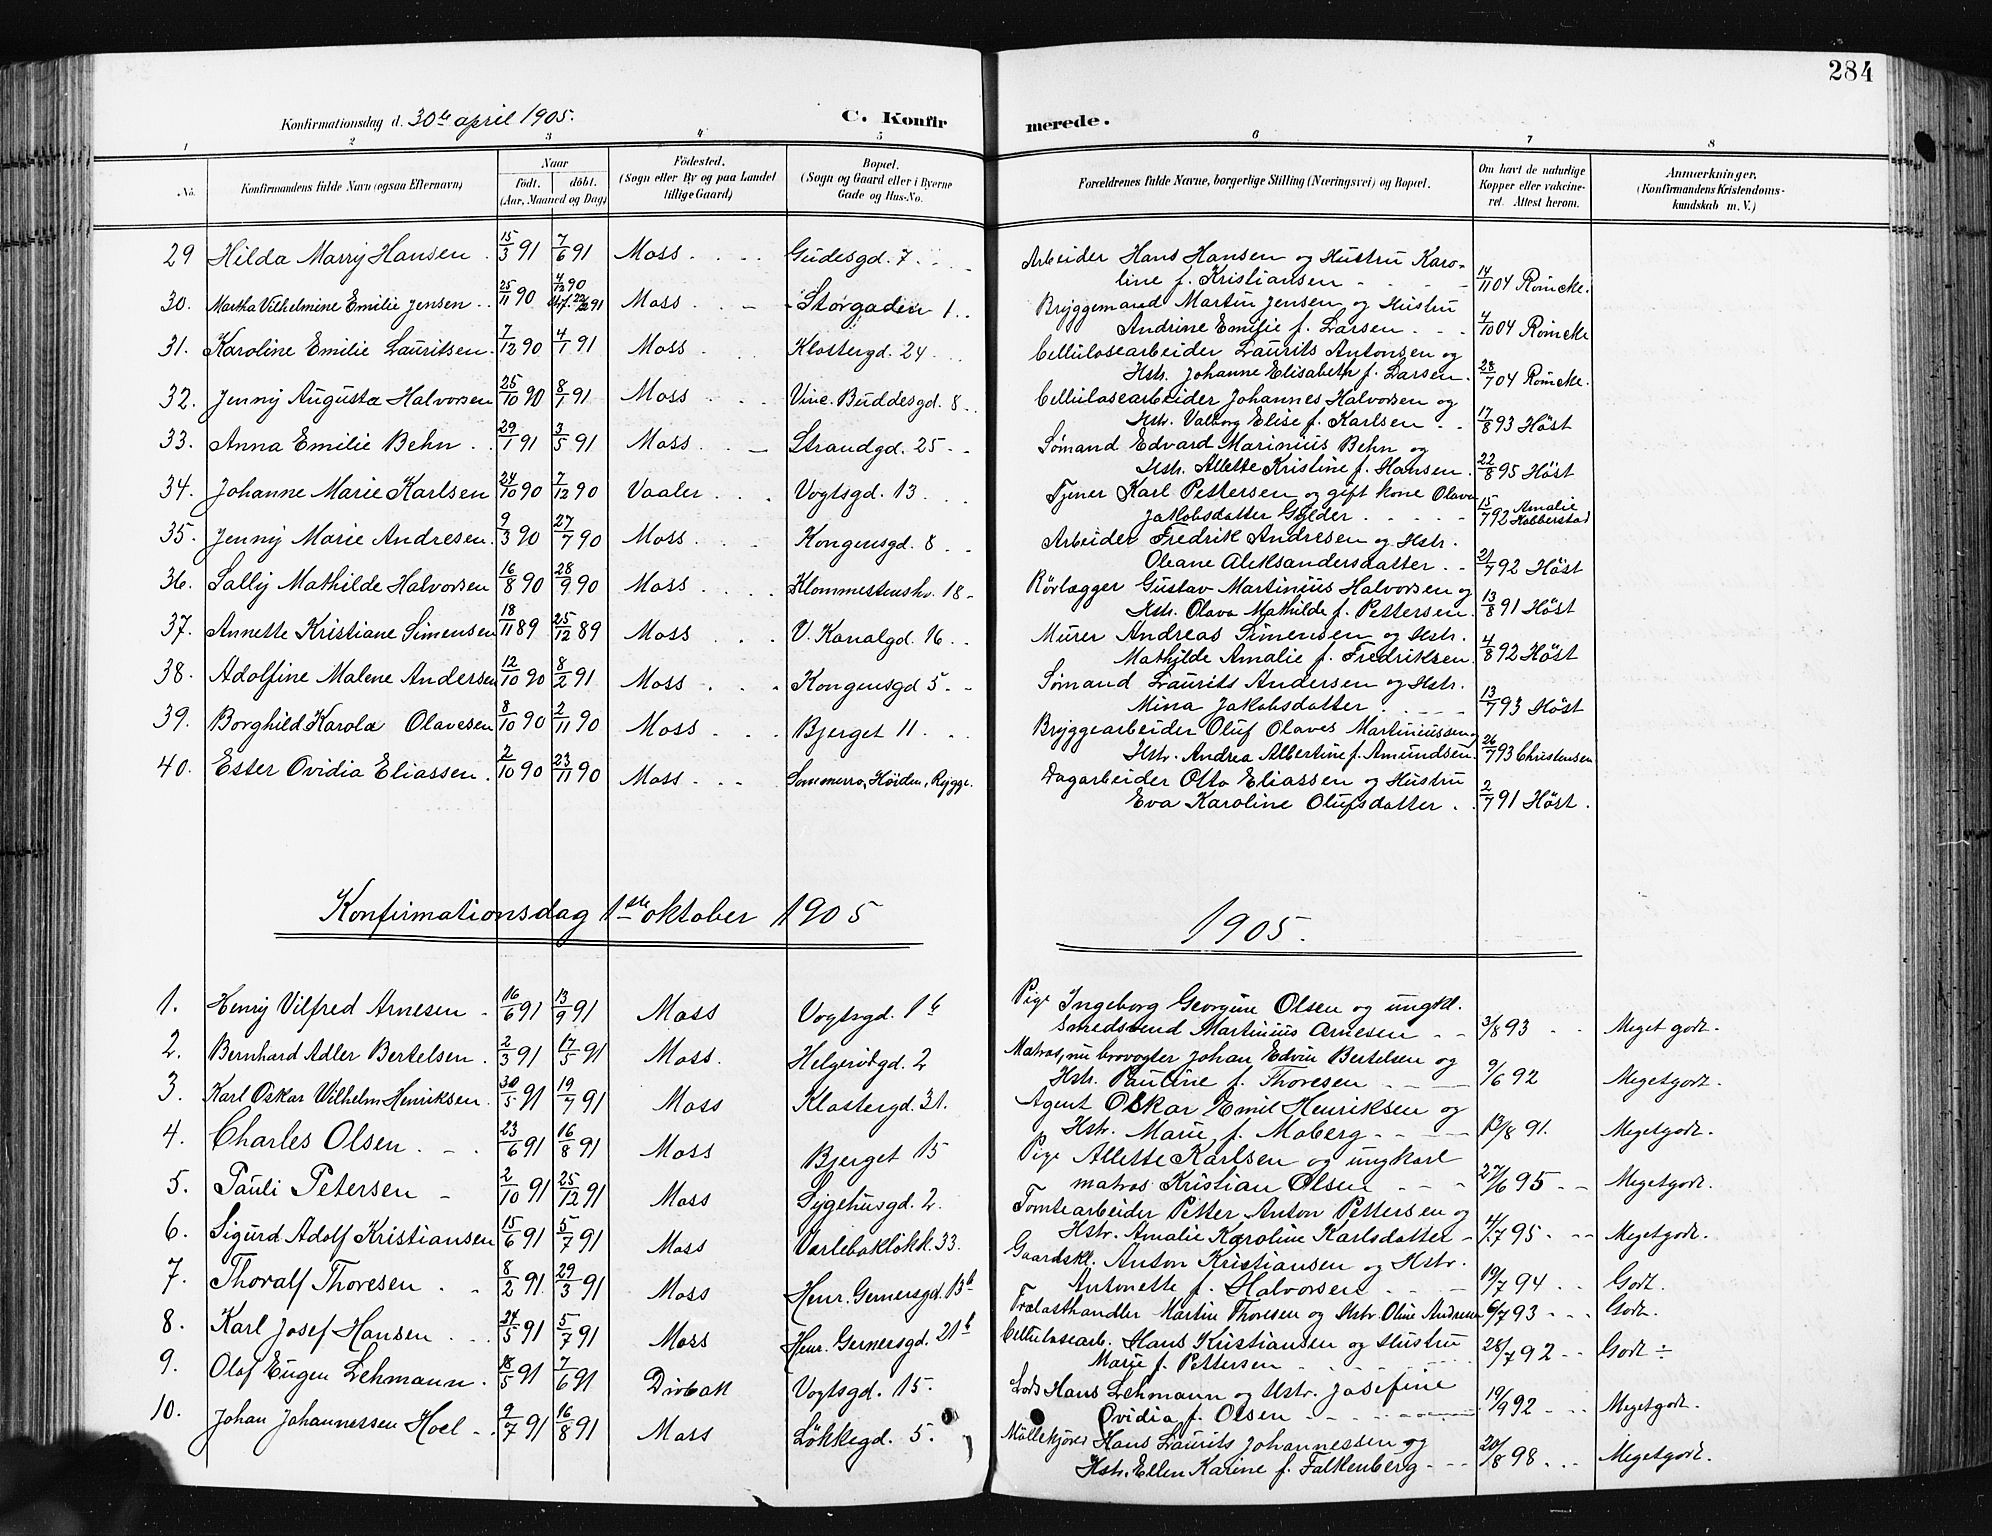 284
Konfirmationsdag d. 30te april 1905.
C. Konfirmerede.
1 2 3 4 5 6 7 8
No. Konfirmandens fulde Navn (ogsaa Efternavn) Naar født. døbt. (Aar, Maaned og Dag) Fødested. (Sogn eller By og paa Landet tillige Gaard) Bopæl. (Sogn og Gaard eller i Byerne Gade og Hus-No. Forældrenes fulde Navne, borgerlige Stilling (Næringsvei) og Bopæl. Om havt de naturlige Kopper eller vakcineret. Attest herom. Anmærkninger. (Konfirmandens Kristendomskundskab m. V.)
29 Hilda Marry Hansen 15/3 91 7/6 91 Moss Gudesgd. 7 Arbeider Hans Hansen og Hustru Karoline f. Kristiansen 14/11 04 Roincke.
30. Martha Vilhelmine Emilie Jensen 25/11 90 4/12 90 22/2 91 Moss Storgaden 1 Bryggemand Martin Jensen og Hustru Andrine Emilie f. Larsen 4/10 04 Roincke
31. Karoline Emilie Lauritsen 7/12 90 4/1 91 Moss Klostergd. 24 Cellulosearbeider Laurits Antonsen og Hstr. Johanne Elisabeth f. Larsen 28/7 04 Roincke.
32. Jenny Augusta Halvorsen 25/10 90 8/1 91 Moss Vinc. Buddesgd. 8 Cellulosearbeider Johannes Halvorsen og Hstr. Valborg Elise f. Karlsen 17/8 93 Höst
33. Anna Emilie Behn 29/1 91 3/5 91 Moss Strandgd. 25 Sømand Edvard Marinius Behn og Hstr. Allette Kristine f. Hansen 22/8 95 Höst
34. Johanne Marie Karlsen 24/10 90 7/12 90 Vaaler Vogtsgd. 13 Tjener Karl Pettersen og gift kone Olava Jakobsdatter Gylder 15/7 92 Amalie Kobberstad
35. Jenny Marie Andresen 9/3 90 27/7 90 Moss Kongensgd. 8 Arbeider Fredrik Andresen og Hstr. Oleane Aleksandersdatter 21/7 92 Höst
36. Sally Mathilde Halvorsen 16/8 90 28/9 90 Moss Klommestenshv. 18 Rörlægger Gustav Martinius Halvorsen og Hstr. Olava Mathilde f. Pettersen 13/8 91 Höst
37. Annette Kristiane Simensen 18/11 89 25/12 89 Moss V. Kanalgd. 16 Murer Andreas Simensen og Hstr. Mathilde Amalie f. Fredriksen 4/8 92 Höst
38. Adolfine Malene Andersen 12/10 90 8/2 91 Moss Kongensgd 5 Sømand Laurits Andersen og Hstr. Mina Jakobsdatter 13/7 93 Höst
39. Borghild Karola Olavesen 8/10 90 2/11 90 Moss Bjerget 11 Bryggearbeider Oluf Olaves Martiniussen og Hstr. Andrea Albertine f. Amundsen 26/7 93 Christensen
40. Ester Ovidia Eliassen 2/10 90 23/11 90 Moss Sommerro, Høiden, Rygge. Dagarbeider Otto Eliassen og Hustru Eva Karoline Olufsdatter 2/7 91 Höst
Konfirmationsdag 1ste oktober 1905 1905.
1. Henry Vilfred Arnesen 16/6 91 13/9 91 Moss Vogtsgd. 1b Pige Ingeborg Georgine Olsen og ungkl. smedsvend Martinius Arnesen 3/8 93 Meget godt.
2. Bernhard Adler Bertelsen 2/3 91 17/5 91 Moss. Helgerödgd. 2 Matros, nu brovogter Johan Edvin Bertelsen og Hstr. Pauline f. Thoresen 9/6 92 Megetgodt.
3. Karl Oskar Wilhelm Henriksen 30/5 91 19/7 91 Moss Klostergd. 31. Agent Oskar Emil Henriksen og Hstr. Marie f. Moberg 13/8 91. Megetgodt.
4. Charles Olsen 23/6 91 16/8 91 Moss Bjerget 15 Pige Allette Karlsen og ungkarl matros Kristian Olsen 27/6 95 Megetgodt.
5. Pauli Petersen 2/10 91 25/12 91 Moss Sygehusgd. 2. Tomtearbeider Petter Anton Pettersen og Hstr. Amalie Karoline Karlsdatter 4/7 95 Megetgodt.
6. Sigurd Adolf Kristiansen 15/6 91 5/7 91 Moss Varlebakløkk. 33. Gaardskl. Anton Kristiansen og Hstr. Antonette f. Halvorsen 19/7 94 Godt.
7. Thoralf Thoresen 8/2 91 29/3 91 Moss Henr. Gernersgd. 13b Trælasthandler Martin Thoresen og Hstr. Oline Andrene 6/7 93 Godt.
8. Karl Josef Hansen 24/5 91 5/7 91 Moss Henr. Gernersgd. 21b Cellulosearb. Hans Kristiansen og Hustru Marie f. Pettersen 28/7 92 Godt ÷
9. Olaf Eugen Lehmann 18/5 91 7/6 91 Dröbak Vogtsgd. 15. Lods Hans Lehmann og Hstr. Josefine Ovidia f. Olsen 19/9 92 Megetgodt.
10. Johan Johannessen Hoel 9/7 91 16/8 91 Moss Løkkegd. 5. Møllekjører Hans Laurits Johannessen og Hstr. Ellen Karine f. Falkenberg 20/8 98 Megetgodt.